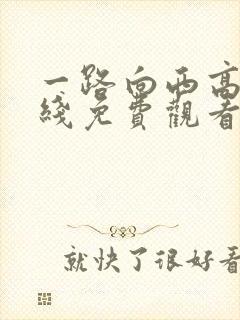 一路向西高
綫免費觀看
就快了很好看